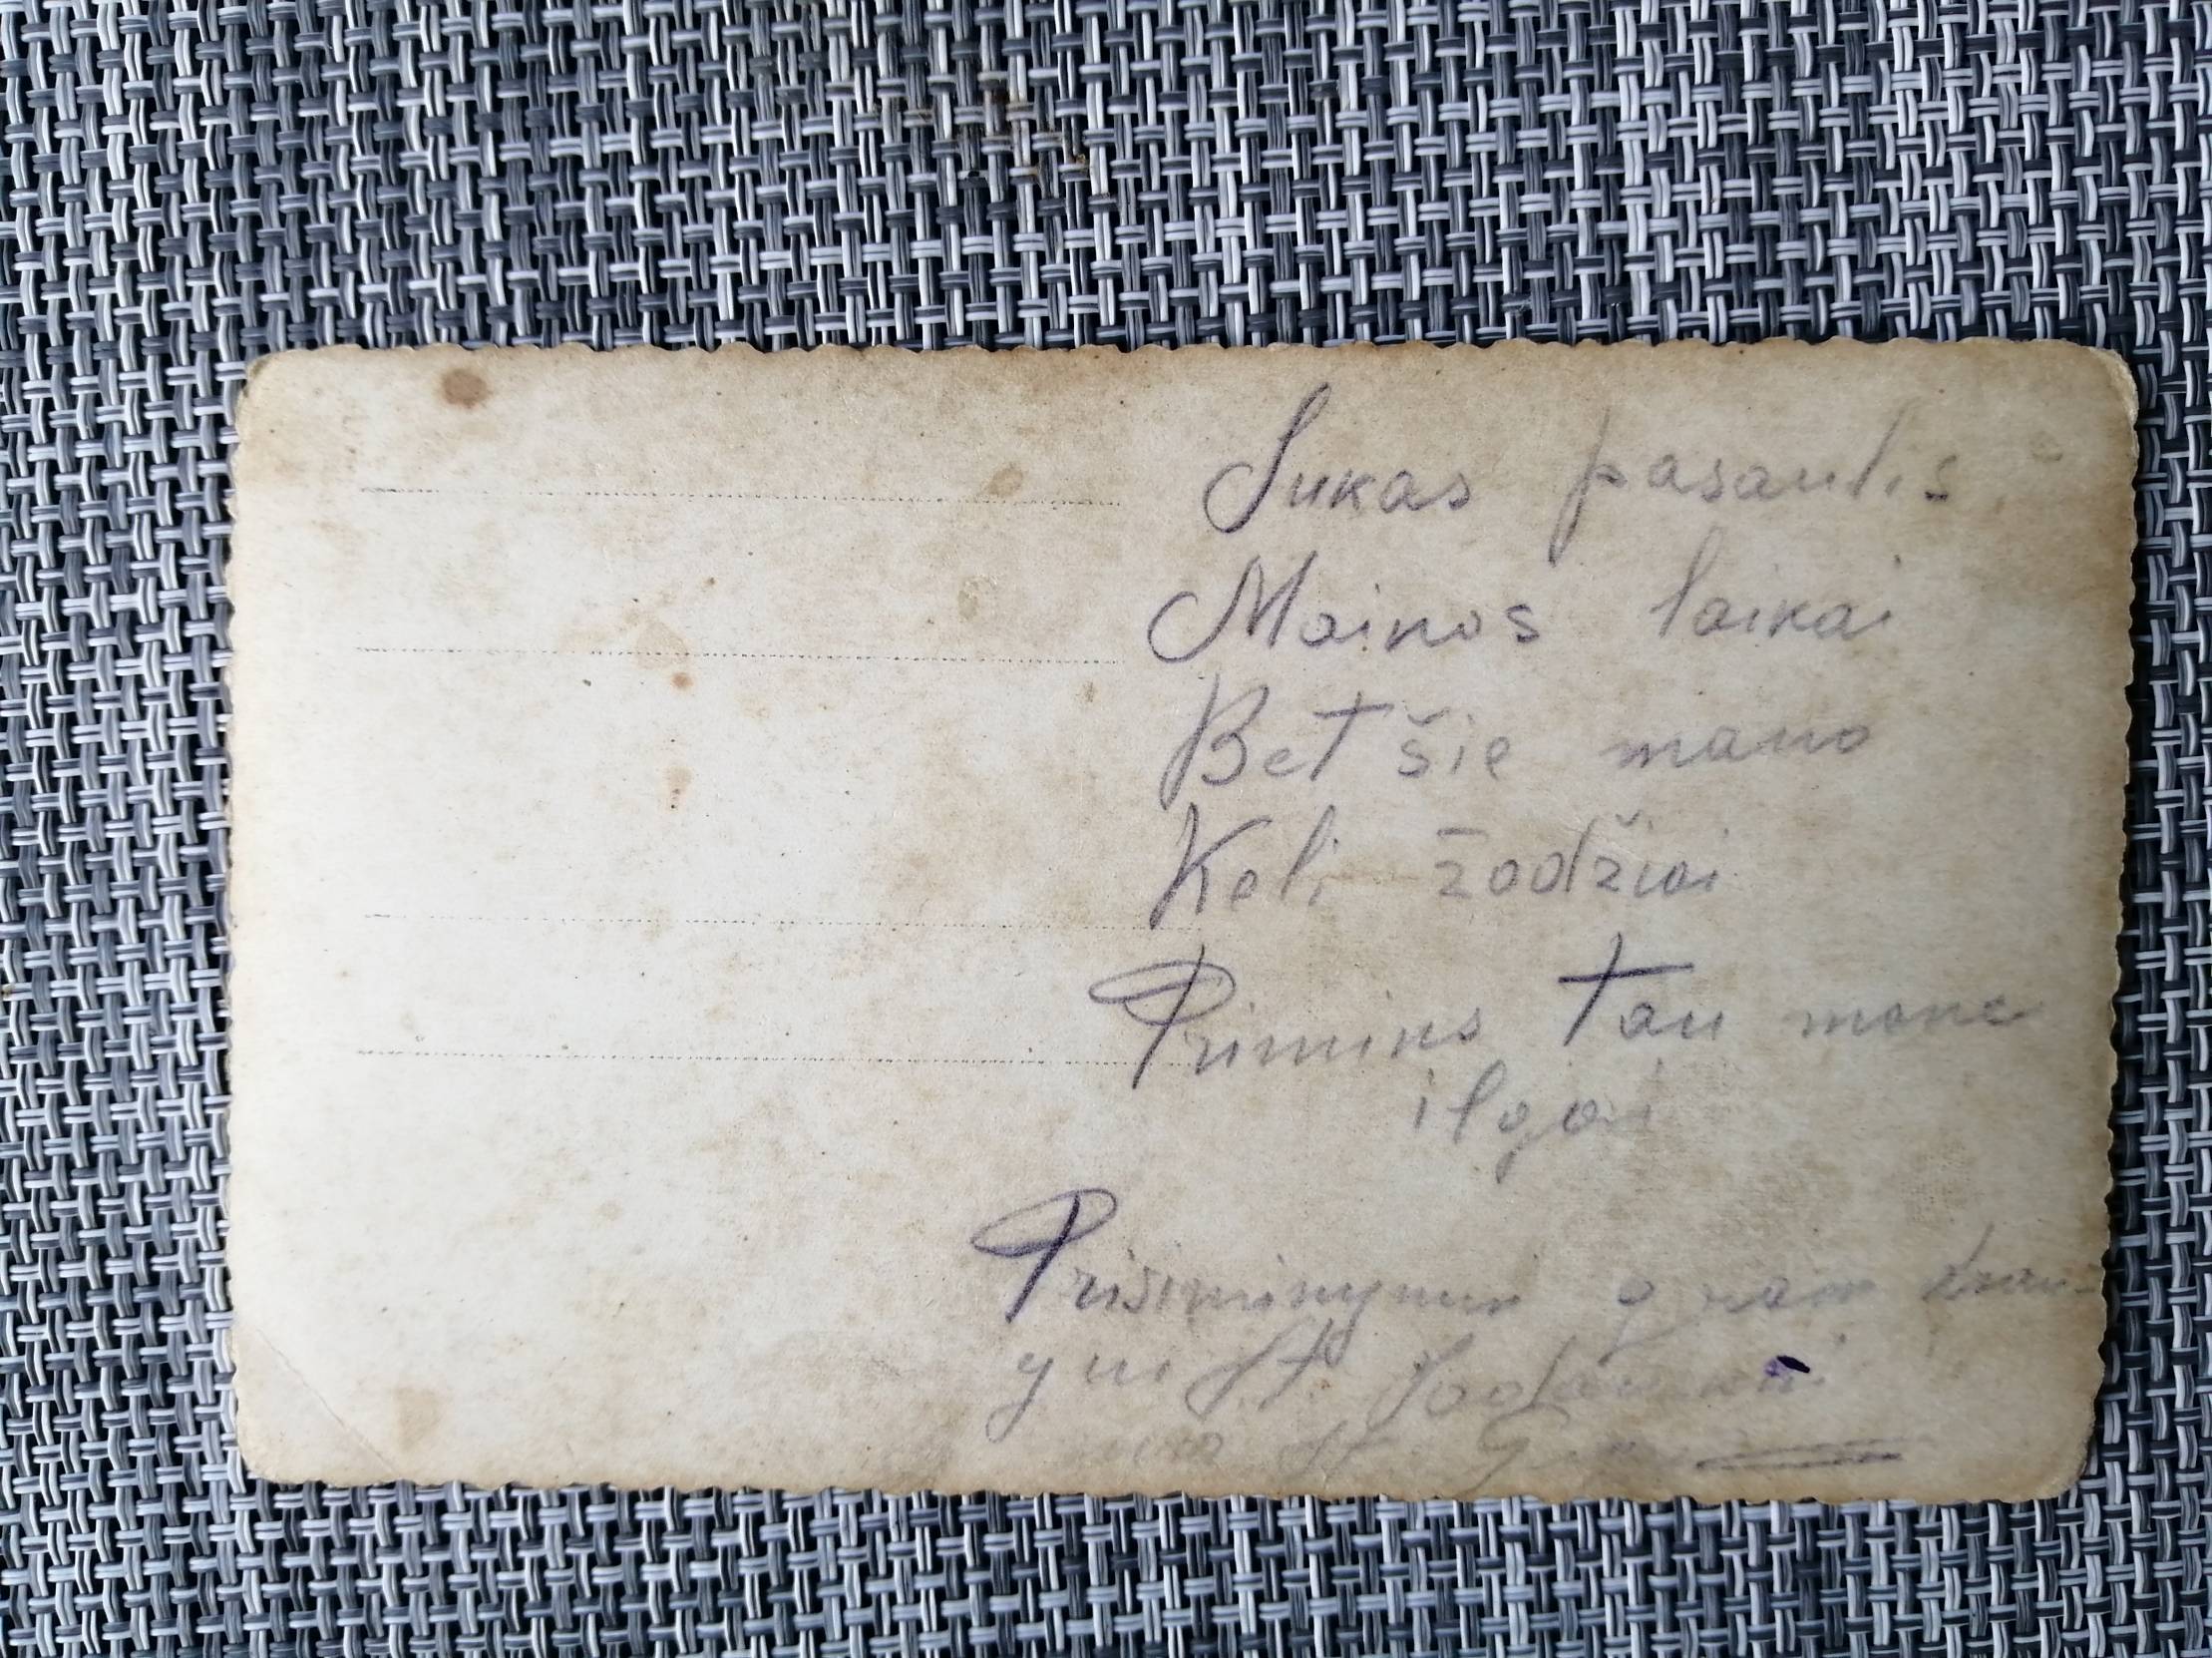 Sukas pasaulis
Mainos laikai
Bet šie mano
Keli žodžiai
Primins tau mane
ilgai
Prisiminymui geram drau-
gui St.
St.